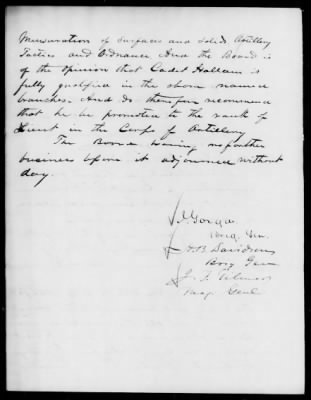 Mensuration of Surfaces and Solids, Artillery
Tactics and Ordnance And the Board is
of the opinion that Cadet Hallam is
fully qualified in the above named
branches. And do therefore recommend
that he be promoted to the rank of
Lieut in the Corps of Artillery
The Board having no further
business before it adjourned without
day.
J Gorgas
Brig. Gen.
H. B. Davidson
Brig Gen
J. F. Gilmer
Genl